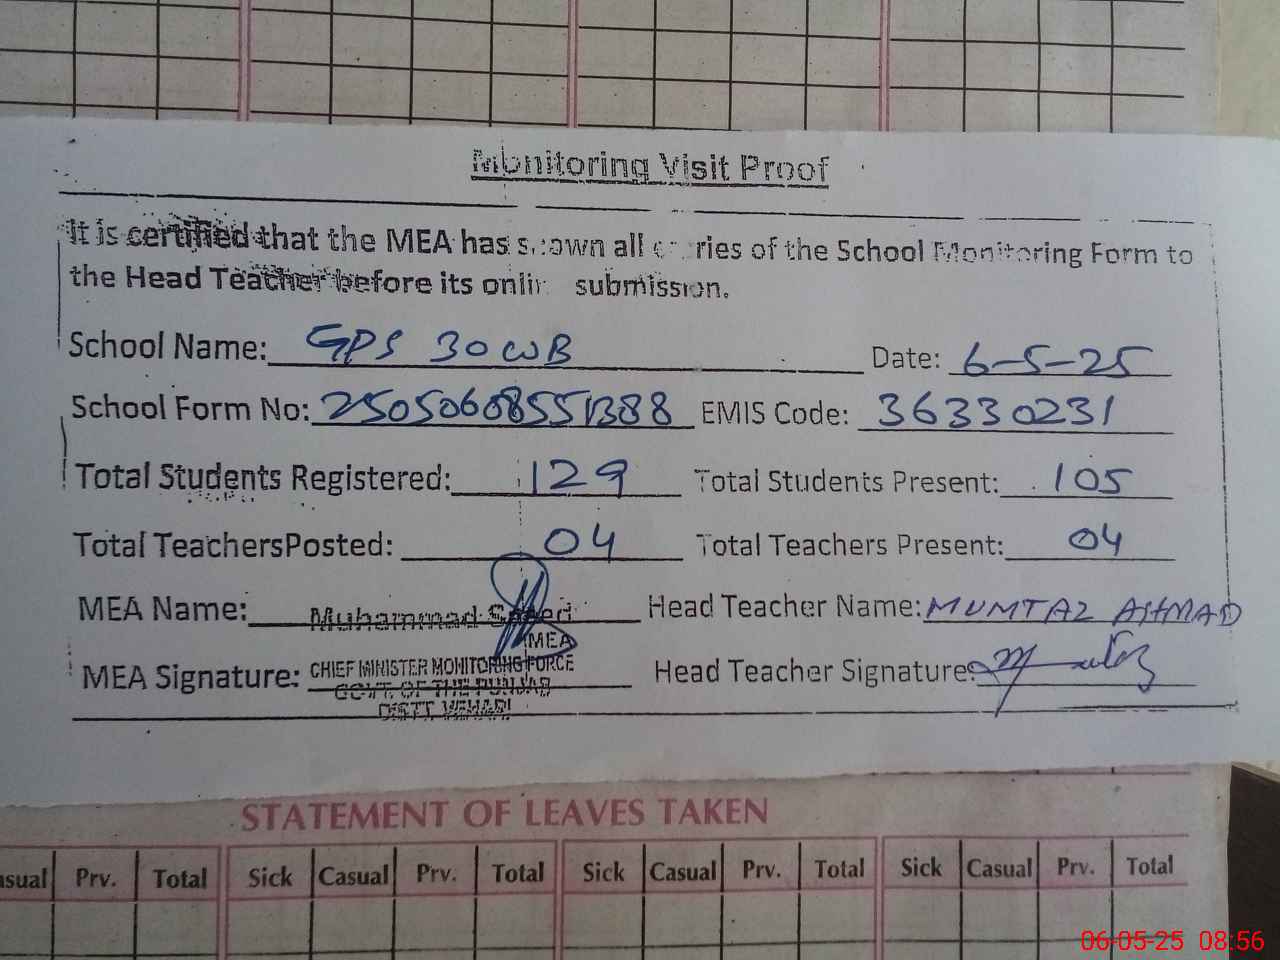 Monitoring Visit Proof
It is certified that the MEA has shown all entries of the School Monitoring Form to
the Head Teacher before its online submission.
School Name: GPS 30 WB Date: 6-5-25
School Form No: 25050608551388 EMIS Code: 36330231
Total Students Registered: 129 Total Students Present: 105
Total TeachersPosted: 04 Total Teachers Present: 04
MEA Name: Muhammad Saeed Head Teacher Name: MUMTAZ AHMAD
MEA
MEA Signature: CHIEF MINISTER MONITORING FORCE Head Teacher Signature:
GOVT. OF THE PUNJAB
DISTT. VEHARI
STATEMENT OF LEAVES TAKEN
Prv. Total Sick Casual Prv. Total Sick Casual Prv. Total Sick Casual Prv. Total
06-05-25 08:56